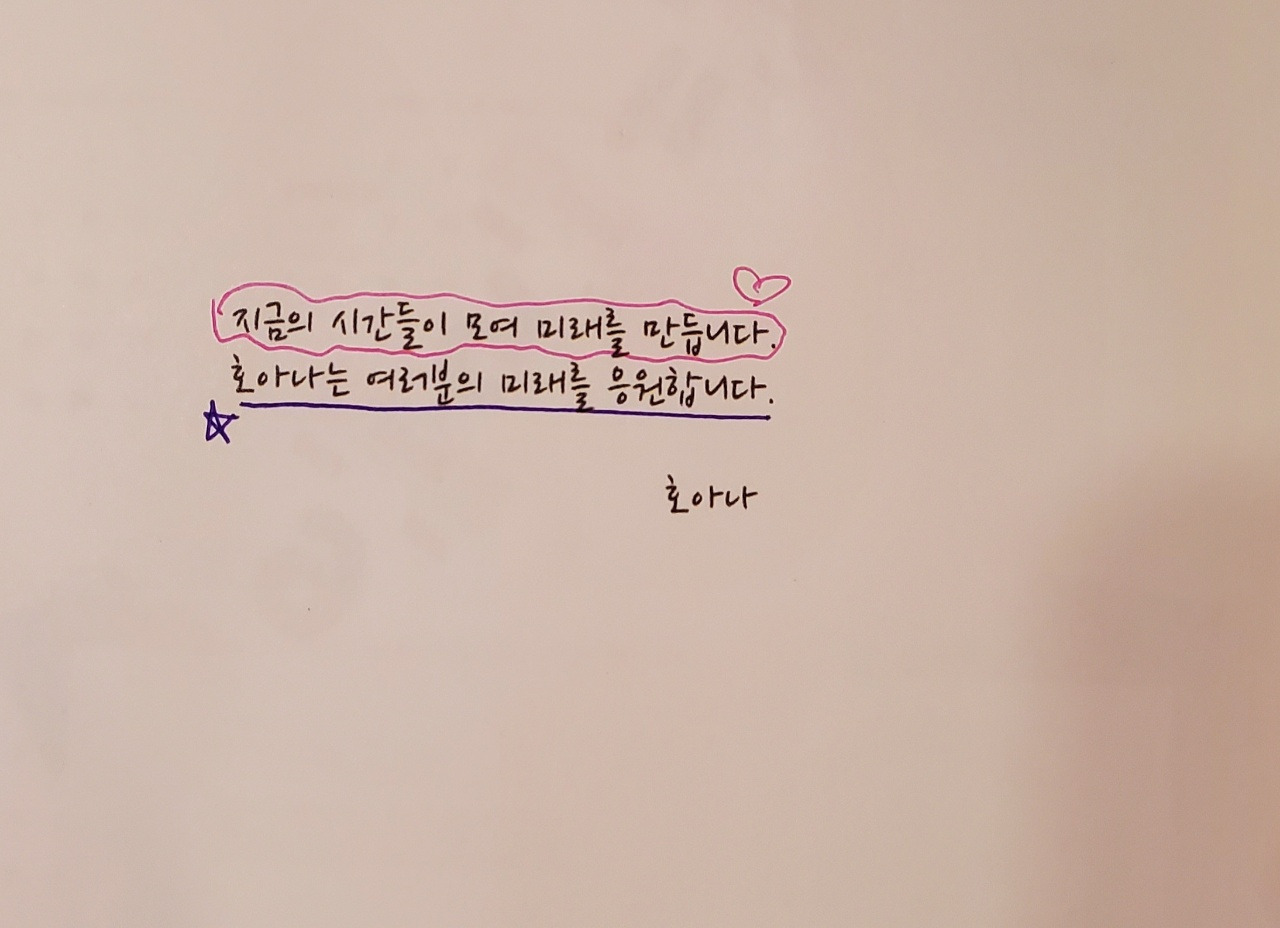 지금의 시간들이 모여 미래를 만듭니다.
호아나는 여러분의 미래를 응원합니다.
호아나